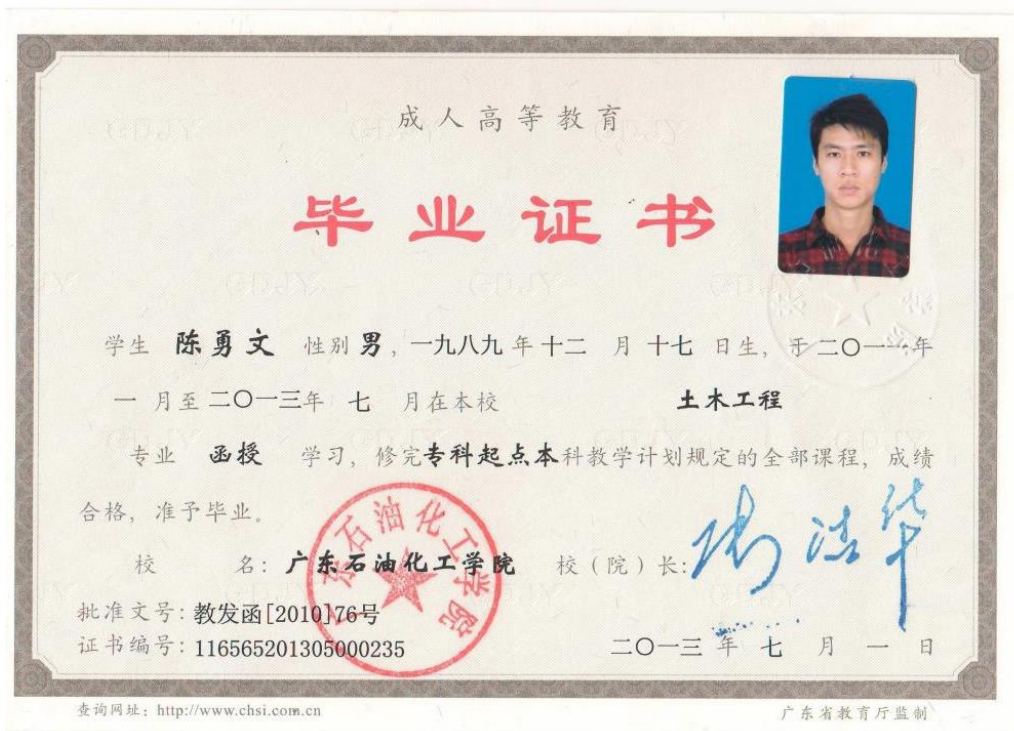 成人高等教育
毕业证书
学生 陈勇文 性别 男，一九八九 年 十二 月 十七 日生，于 二〇一一年
一 月至 二〇一三年 七 月在本校 土木工程
专业 函授 学习，修完专科起点本科教学计划规定的全部课程，成绩
合格，准予毕业。
广东石油化工学院
校 名：广东石油化工学院 校（院）长：
批准文号：教发函[2010]76号
证书编号：116565201305000235
二〇一三 年 七 月 一 日
查询网址：http://www.chsi.com.cn
广东省教育厅监制